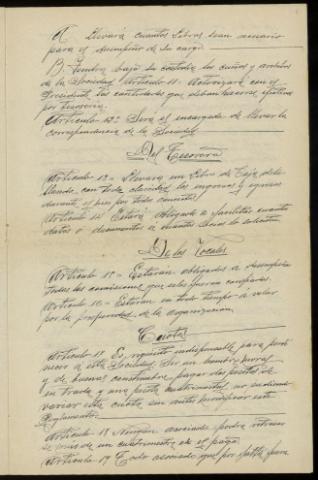 A Llevará cuantos libros sean necesario
para el desempeño de su cargo
B: Tendra bajo su custodia los cuños y
de la Sociedad Artículo 11- Autorizará con el
Presidente las cantidades que deban hacerse efectivas
por tesorería.
Artículo 12= Será el encargado de llevar la
correspondencia de la Sociedad
Del Tesorero
Artículo 13- Llevara un Libro de Caja deta-
llando, con toda claridad los ingresos y egresos
durante el mes por todo concepto
Artículo 14 Estará obligado a facilitar cuantos
datos o documentos a cuantos socios lo soliciten
De los Vocales
Artículo 15- Estarán obligados a desempeñar
todas las comisiones que les fueren
Artículo 16- Estarán en todo tiempo a velar
por la prosperidad de la organización.
Cuotas
Artículo 17 Es, requisito indispensable para perte
necer a esta Sociedad Ser un hombre moral
y de buenas costumbres pagar dos pesetas de
entrada y una peseta no pudiendo
variar esta cuota sin antes modificar este
Reglamento.
Artículo 18 Ningún asociado podra
de mas de un cuatrimestre de el pago
Artículo 19 Todo asociado que por falta para